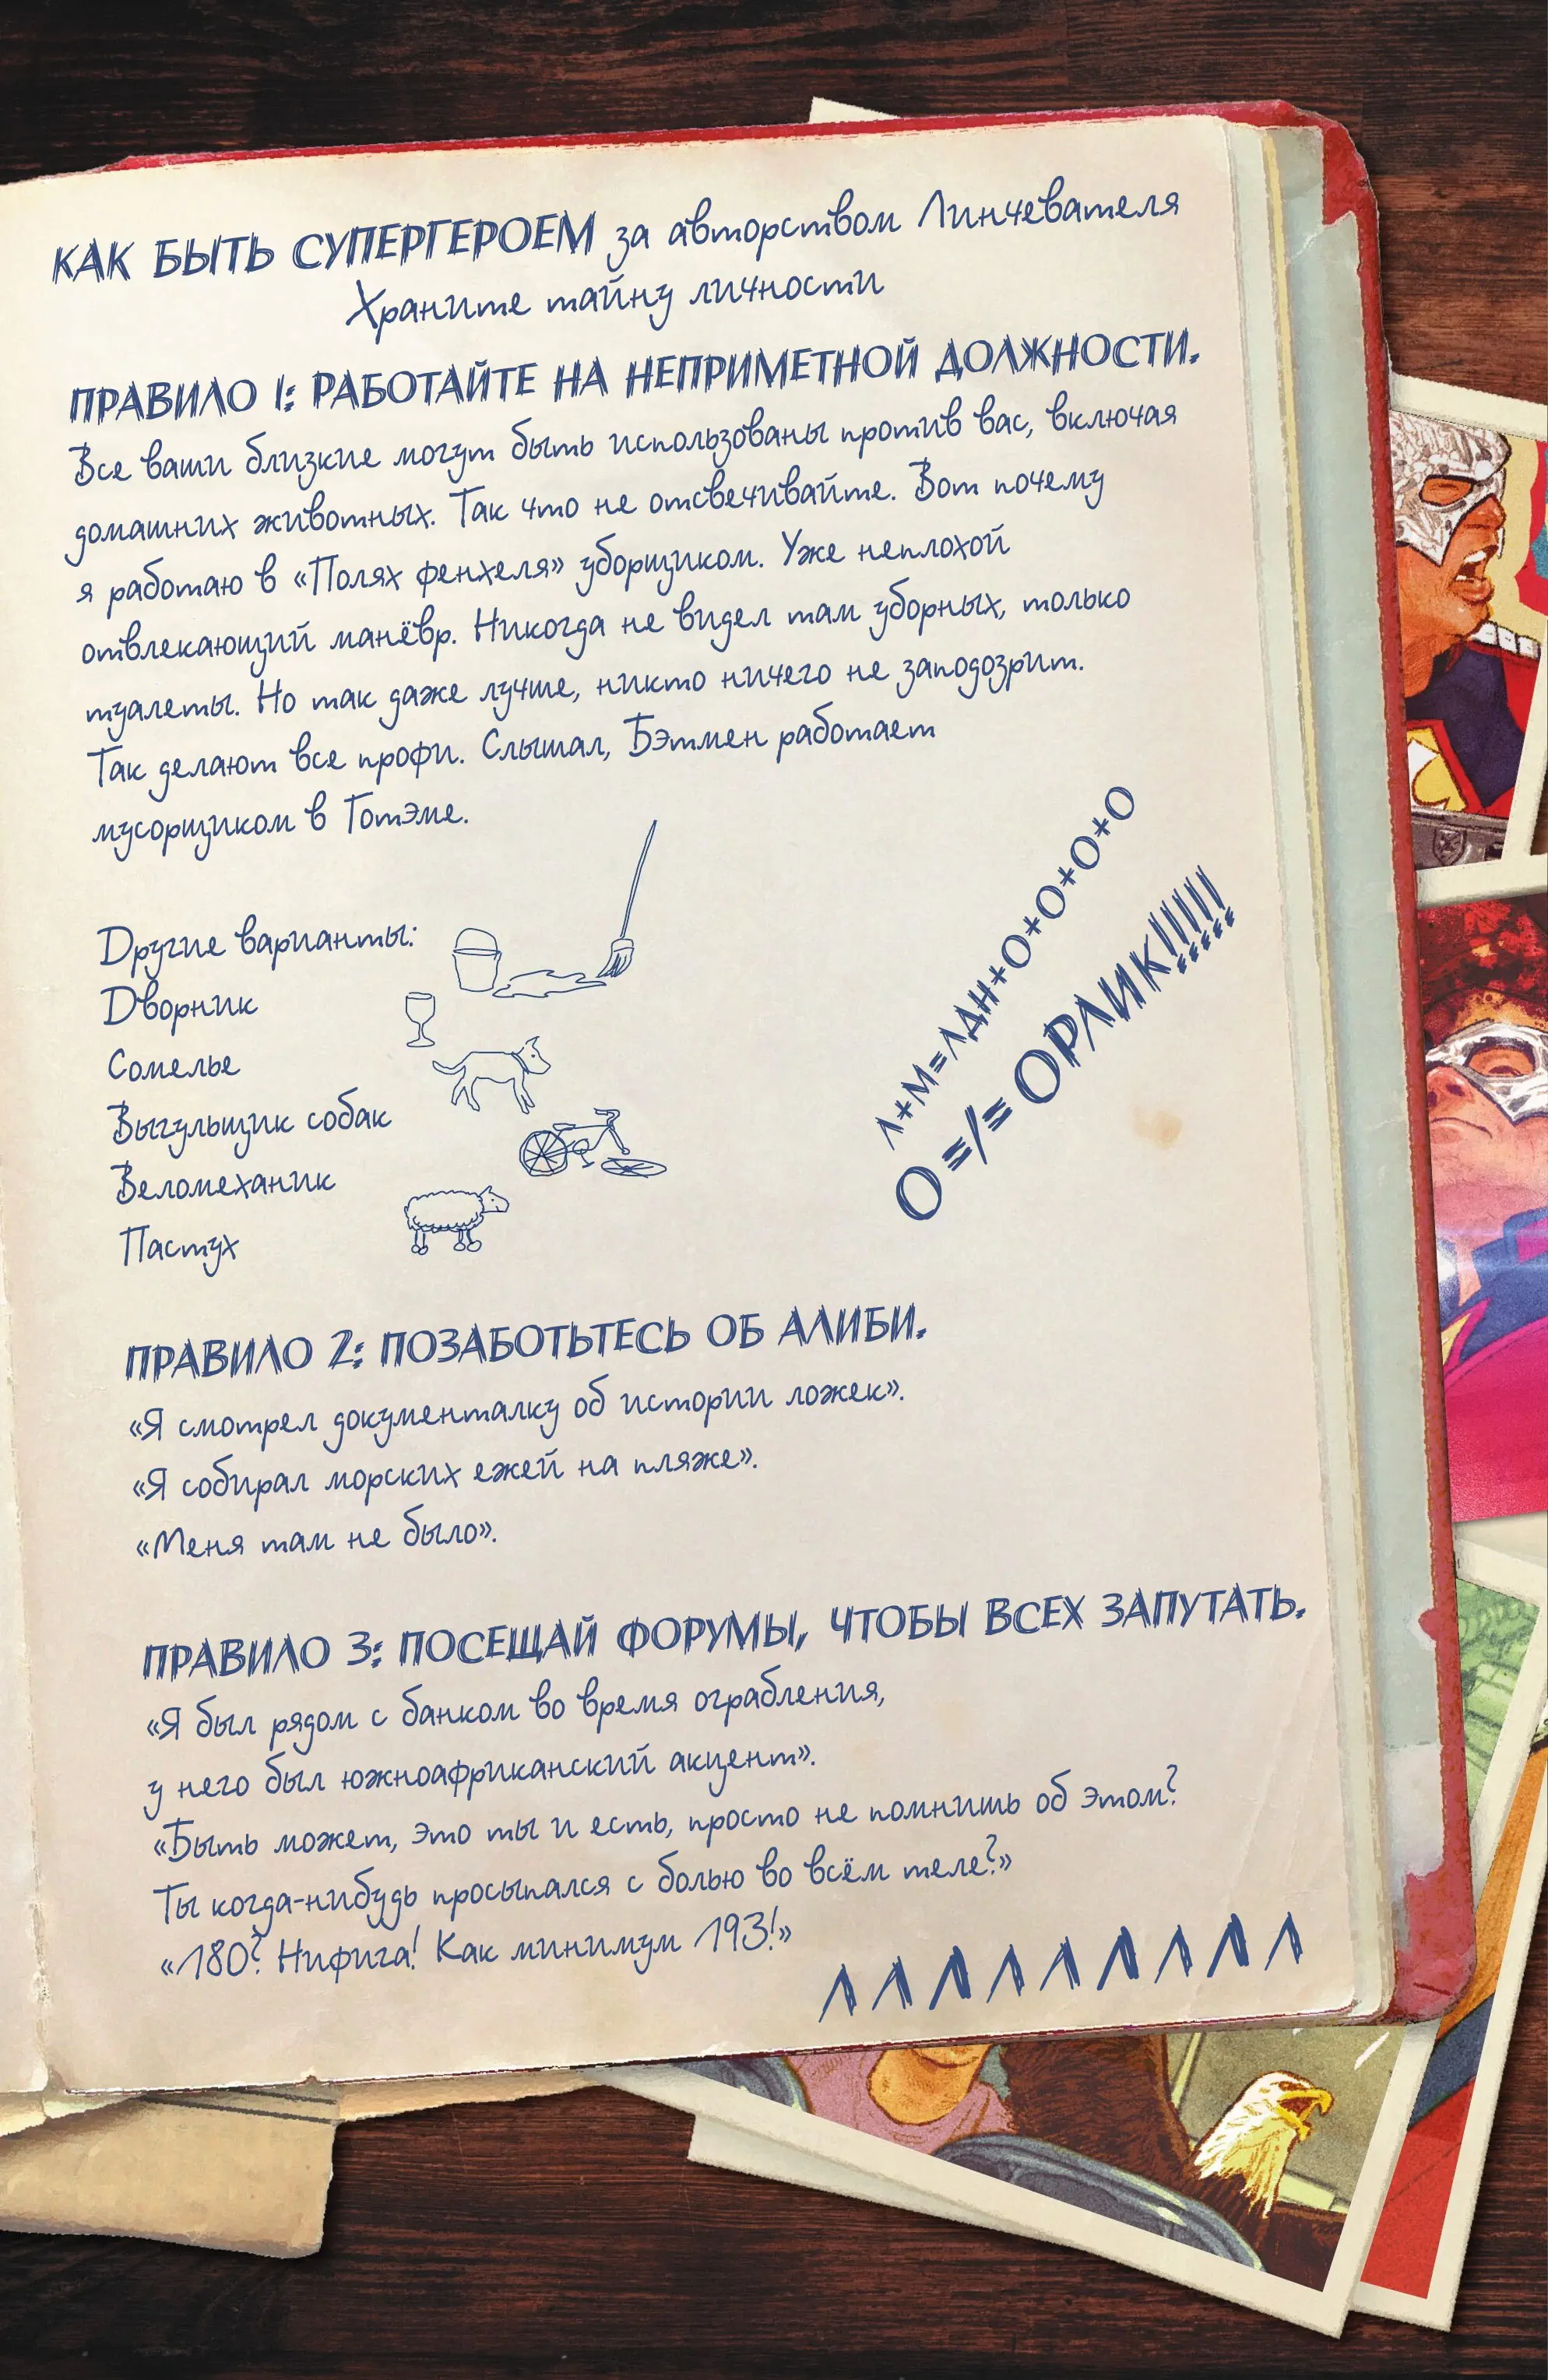 КАК БЫТЬ СУПЕРГЕРОЕМ за авторством Линчевателя
Храните тайну личности
ПРАВИЛО 1: РАБОТАЙТЕ НА НЕПРИМЕТНОЙ ДОЛЖНОСТИ.
Все ваши близкие могут быть использованы против вас, включая
домашних животных. Так что не отсвечивайте. Вот почему
я работаю в «Полях фенхеля» уборщиком. Уже неплохой
отвлекающий манёвр. Никогда не видел там уборных, только
туалеты. Но так даже лучше, никто ничего не заподозрит.
Так делают все профи. Слышал, Бэтмен работает
мусорщиком в Готэме.
Другие варианты:
Дворник
Сомелье
Выгульщик собак
Веломеханик
Пастух
Л+М=ЛДН+О+О+О+О+О
О =/= ОРЛИК!!!!!!
ПРАВИЛО 2: ПОЗАБОТЬТЕСЬ ОБ АЛИБИ.
«Я смотрел документалку об истории ложек».
«Я собирал морских ежей на пляже».
«Меня там не было».
ПРАВИЛО 3: ПОСЕЩАЙ ФОРУМЫ, ЧТОБЫ ВСЕХ ЗАПУТАТЬ.
«Я был рядом с банком во время ограбления,
у него был южноафриканский акцент».
«Быть может, это ты и есть, просто не помнишь об этом?
Ты когда-нибудь просыпался с болью во всём теле?»
«180? Нифига! Как минимум 193!»
Л Л Л Л Л Л Л Л Л